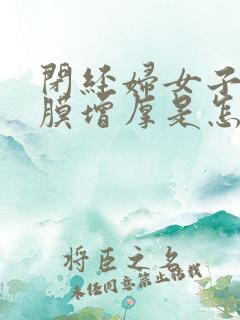 閉經婦女子
膜增厚是怎
將臣之名
未经同意禁止转载